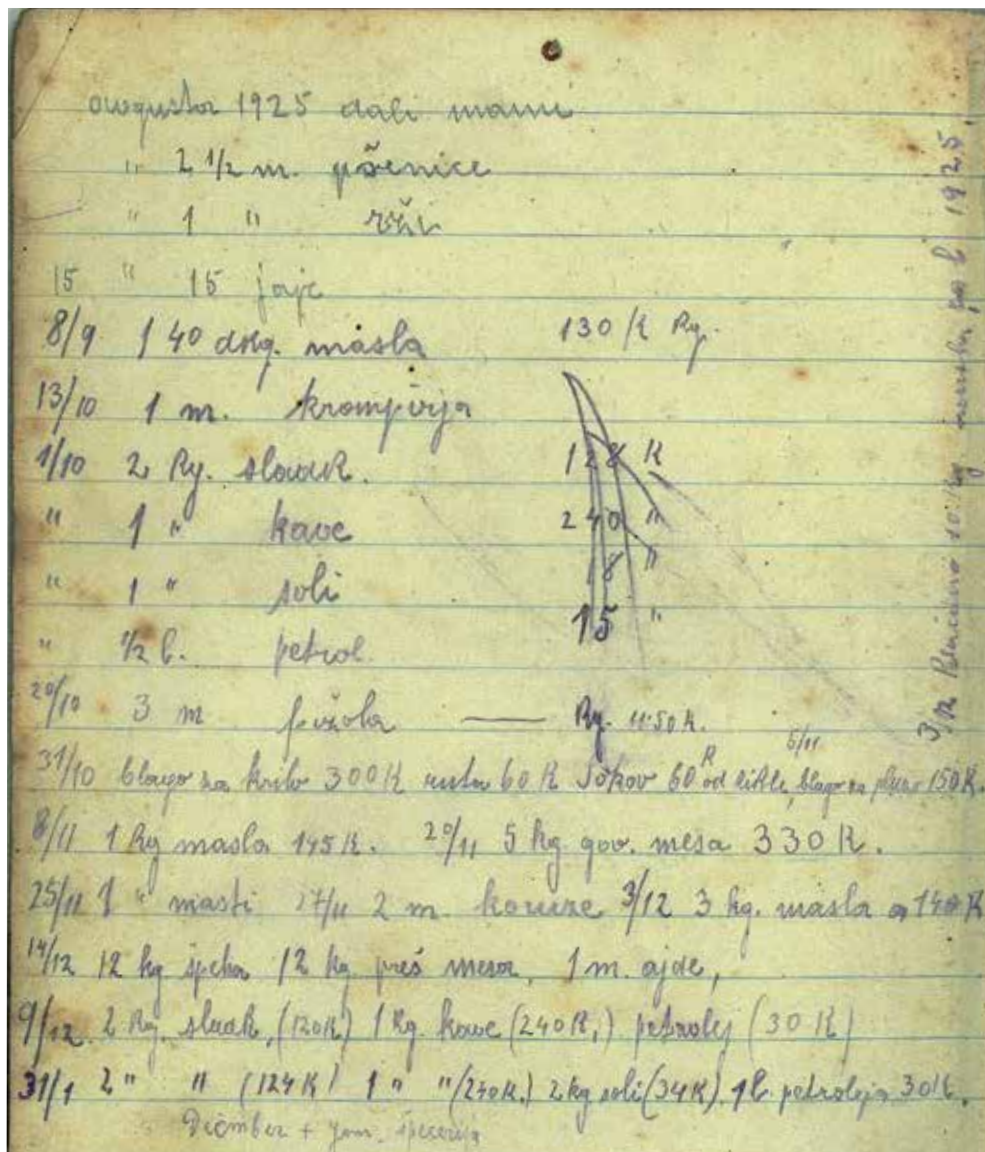 avgusta 1925 dali mami
" 2 1/2 m. pšenice
" 1 " rži
15 " 15 jajc
8/9 1 40 dkg. masla 130 K kg.
13/10 1 m. krompirja
1/10 2 kg. sladk. 128 K
" 1 " kave 240 "
" 1 " soli 18 "
" 1/2 l. petrol. 15 "
20/10 3 m fižola — kg. 11·50 K.
31/10 blago za krilo 300 K 60 K 60 K od 5/11 blago za 150 K.
8/11 1 kg masla 145 K. 20/11 5 kg gov. mesa 330 K.
25/11 1 " masti 27/11 2 m. koruze 3/12 3 kg. masla a 140 K
14/12 12 kg špeha 12 kg preš mesa, 1 m. ajde,
9/12. 2 kg. sladk, (120K) 1 kg. kave (240 K,) petrolej (30 K)
31/1 2 " " (124 K) 1 " " (240K.) 2 kg soli (34K) 1 l. petroleja 30 K.
Dićmber + jan. špecerija
3/12 10. kg. 1925